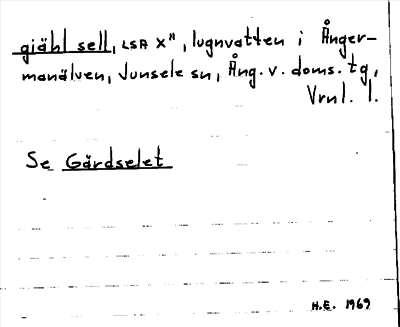 giähl sell, LSA X", lugnvatten i Ånger-
manälven, Junsele sn, Ång. v. doms. tg,
Vrnl. l.
Se Gärdselet
H.E. 1969